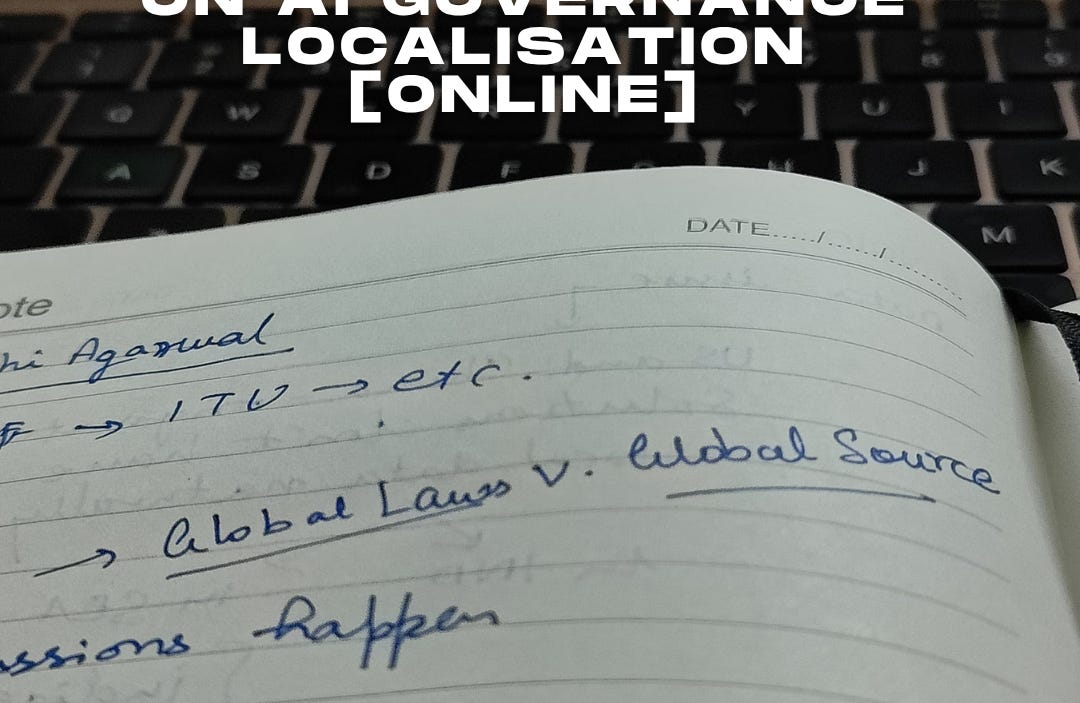 ON AI GOVERNANCE
LOCALISATION
[ONLINE]
DATE...../....../..........
ote
hi Agarwal
→ ITU → etc.
→ Global Laws v. Global Source
ssions happen
Q W Y U I
A S D F J K
M